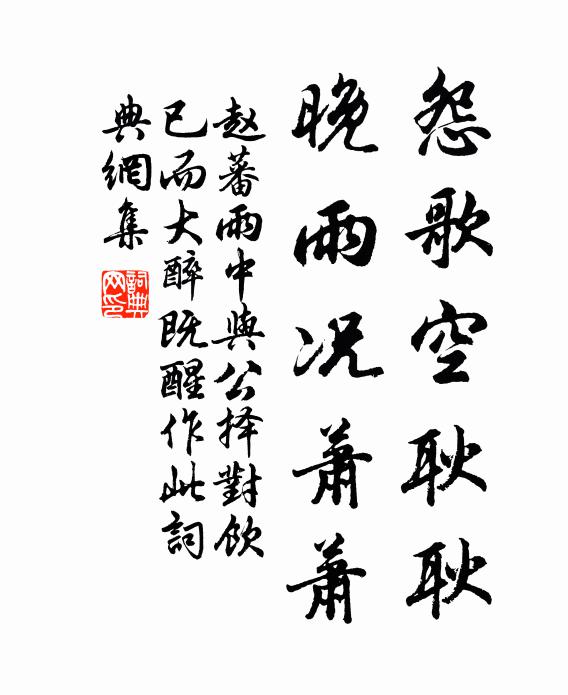 怨歌空耿耿
晚雨况蕭蕭
赵蕃雨中與公择對飲
已而大醉既醒作此詞
典網集
詞典
网印